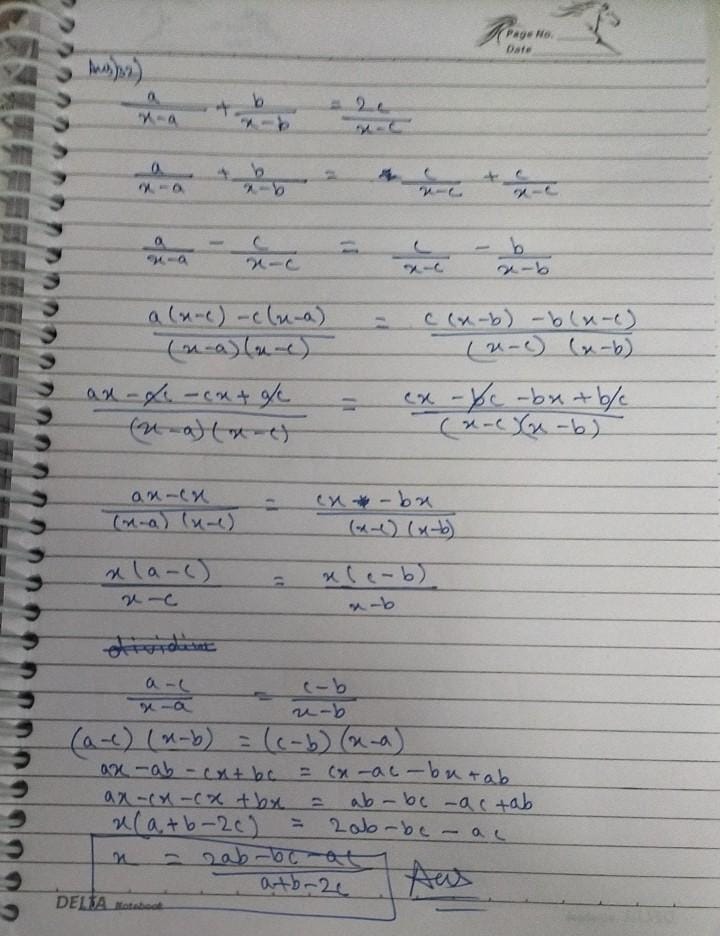 Page No.
Date
Ans)32)
a/(x-a) + b/(x-b) = 2c/(x-c)
a/(x-a) + b/(x-b) = c/(x-c) + c/(x-c)
a/(x-a) - c/(x-c) = c/(x-c) - b/(x-b)
(a(x-c) - c(x-a))/((x-a)(x-c)) = (c(x-b) - b(x-c))/((x-c)(x-b))
(ax - ac - cx + ac)/((x-a)(x-c)) = (cx - bc - bx + bc)/((x-c)(x-b))
(ax-cx)/((x-a)(x-c)) = (cx - bx)/((x-c)(x-b))
x(a-c)/(x-c) = x(c-b)/(x-b)
(a-c)/(x-a) = (c-b)/(x-b)
(a-c)(x-b) = (c-b)(x-a)
ax-ab-cx+bc = cx-ac-bx+ab
ax-cx-cx+bx = ab-bc-ac+ab
x(a+b-2c) = 2ab-bc-ac
x = (2ab-bc-ac)/(a+b-2c) Ans
DELTA Notebook